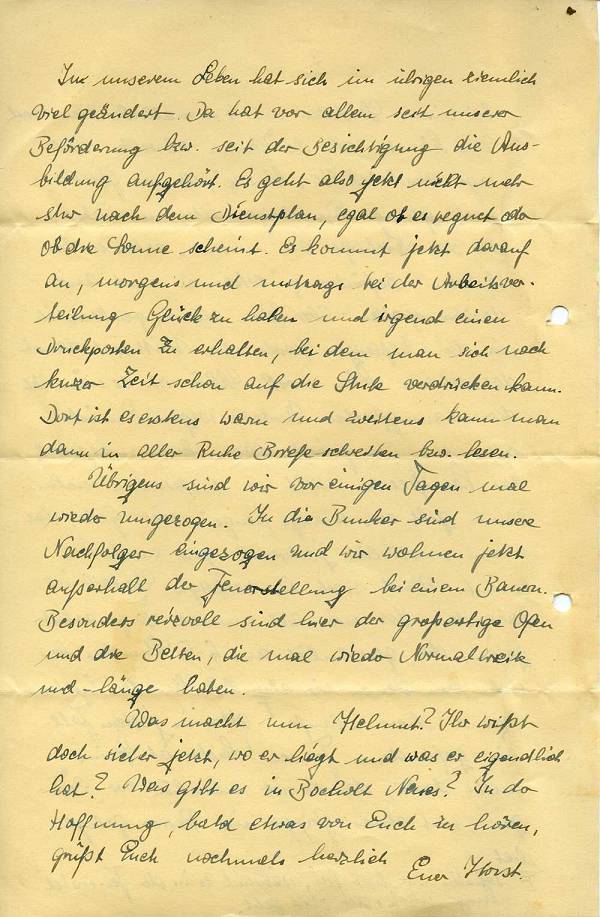 In unserem Leben hat sich im übrigen ziemlich
viel geändert. Da hat vor allem seit unserer
Beförderung bzw. seit der Besichtigung die Aus-
bildung aufgehört. Es geht also jetzt nicht mehr
stur nach dem Dienstplan, egal ob es regnet oder
ob die Sonne scheint. Es kommt jetzt darauf
an, morgens und mittags bei der Arbeitsver-
teilung Glück zu haben und irgend einen
Druckposten zu erhalten, bei dem man sich nach
kurzer Zeit schon auf die Stube verdrücken kann.
Dort ist es erstens warm und zweitens kann man
dann in aller Ruhe Briefe schreiben bzw. lesen.
Übrigens sind wir vor einigen Tagen mal
wieder umgezogen. In die Bunker sind unsere
Nachfolger eingezogen und wir wohnen jetzt
außerhalb der Feuerstellung bei einem Bauern.
Besonders reizvoll sind hier der großartige Ofen
und die Betten, die mal wieder Normalbreite
und -länge haben.
Was macht nun Helmut? Ihr wißt
doch sicher jetzt, wo er liegt und was er eigendlich
hat? Was gibt es in Bocholt Neues? In der
Hoffnung, bald etwas von Euch zu hören,
grüßt Euch nochmals herzlich
Euer Horst.